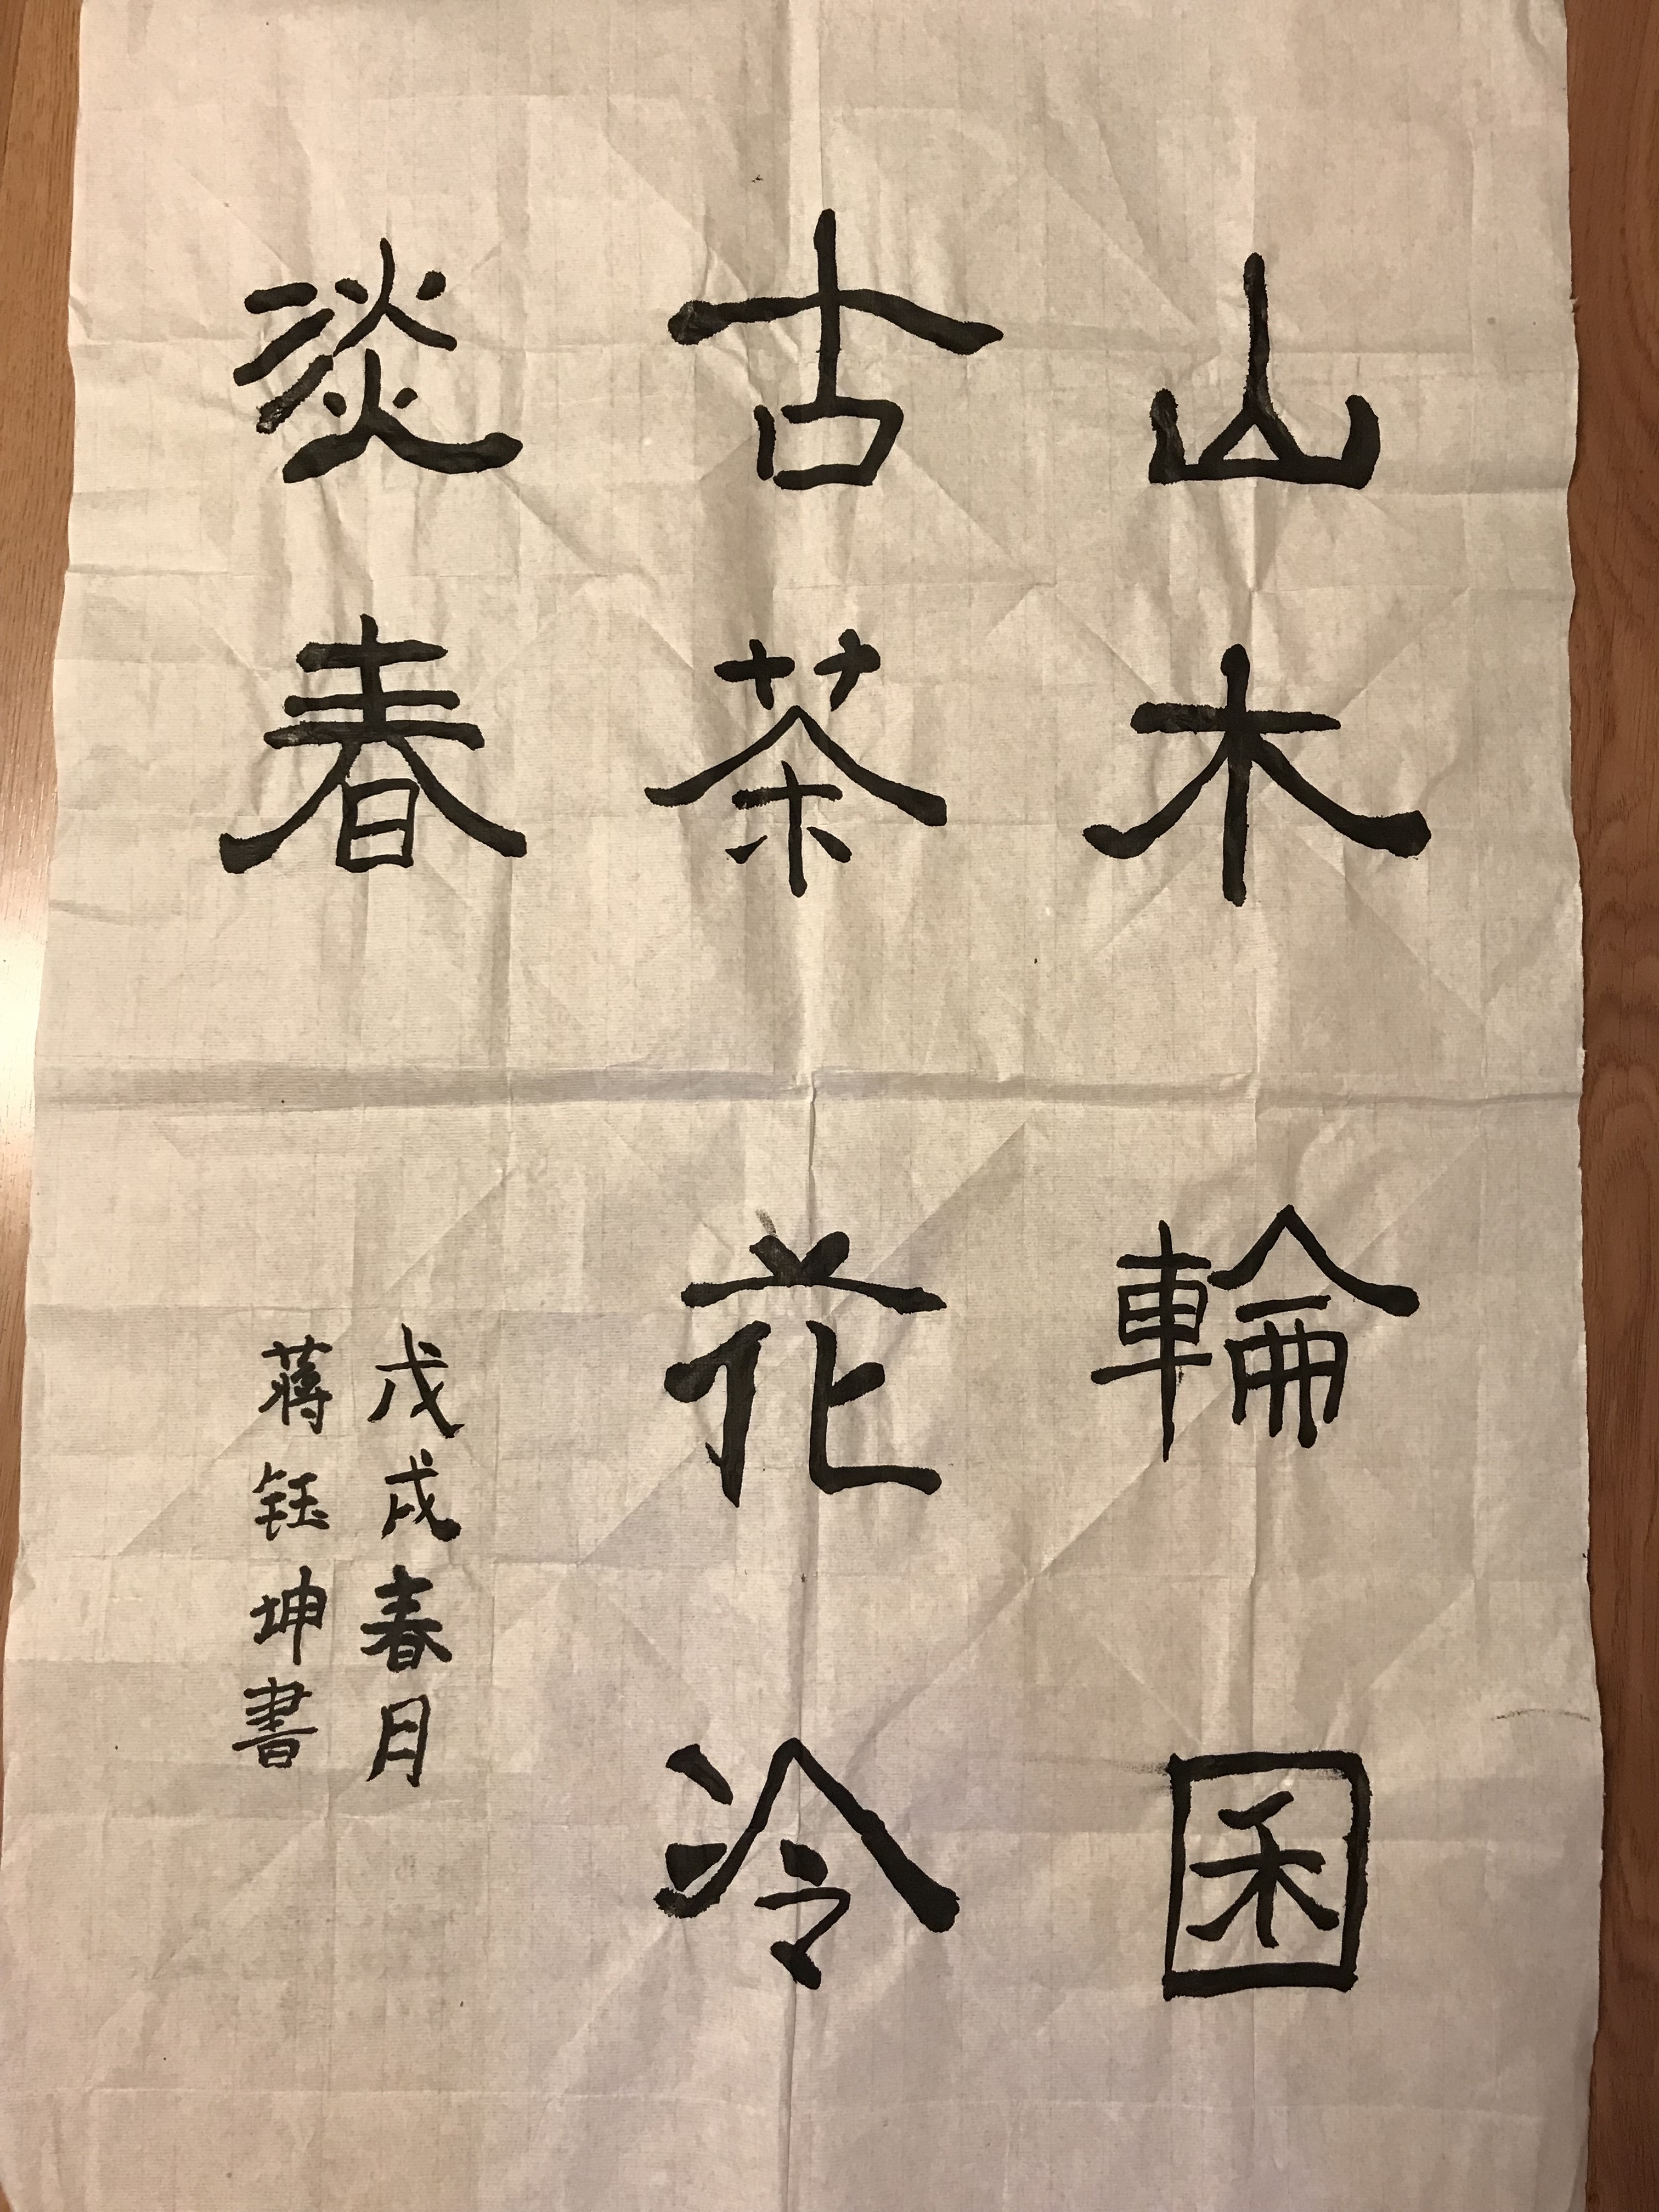 山木輪囷
古茶花冷
淡春
戊戌春月
蔣钰坤書